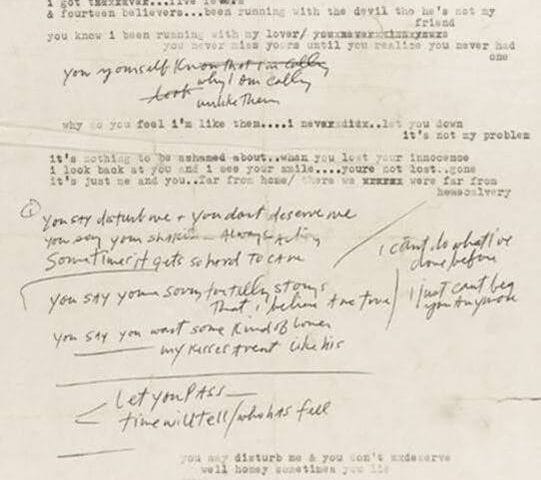 i got txxxxever...five fevers
& fourteen believers...been running with the devil tho he's not my
friend
you know i been running with my lover/
you never miss yours until you realize you never had
one
you yourself know that i'm calling
look why I am calling
unlike them
why do you feel i'm like them....i neverxdidx..let you down
it's not my problem
it's nothing to be ashamed about..when you lost your innocence
i look back at you and i see your smile....youre not lost..gone
it's just me and you..far from home/ there we xxxxxx were far from
hemocalvery
① you say disturb me + you dont deserve me
you say your shakin - Always Acting
Sometimes it gets so hard to care
i cant do what i've
done before
you say youre sorry for telling storys
That i believe Are true
i just cant beg
you Anymore
you say you want some kind of lover
my kisses Arent like his
Let you PASS—
time will tell/who has fell
you say disturb me & you don't xxdeserve
well honey sometimes you lie